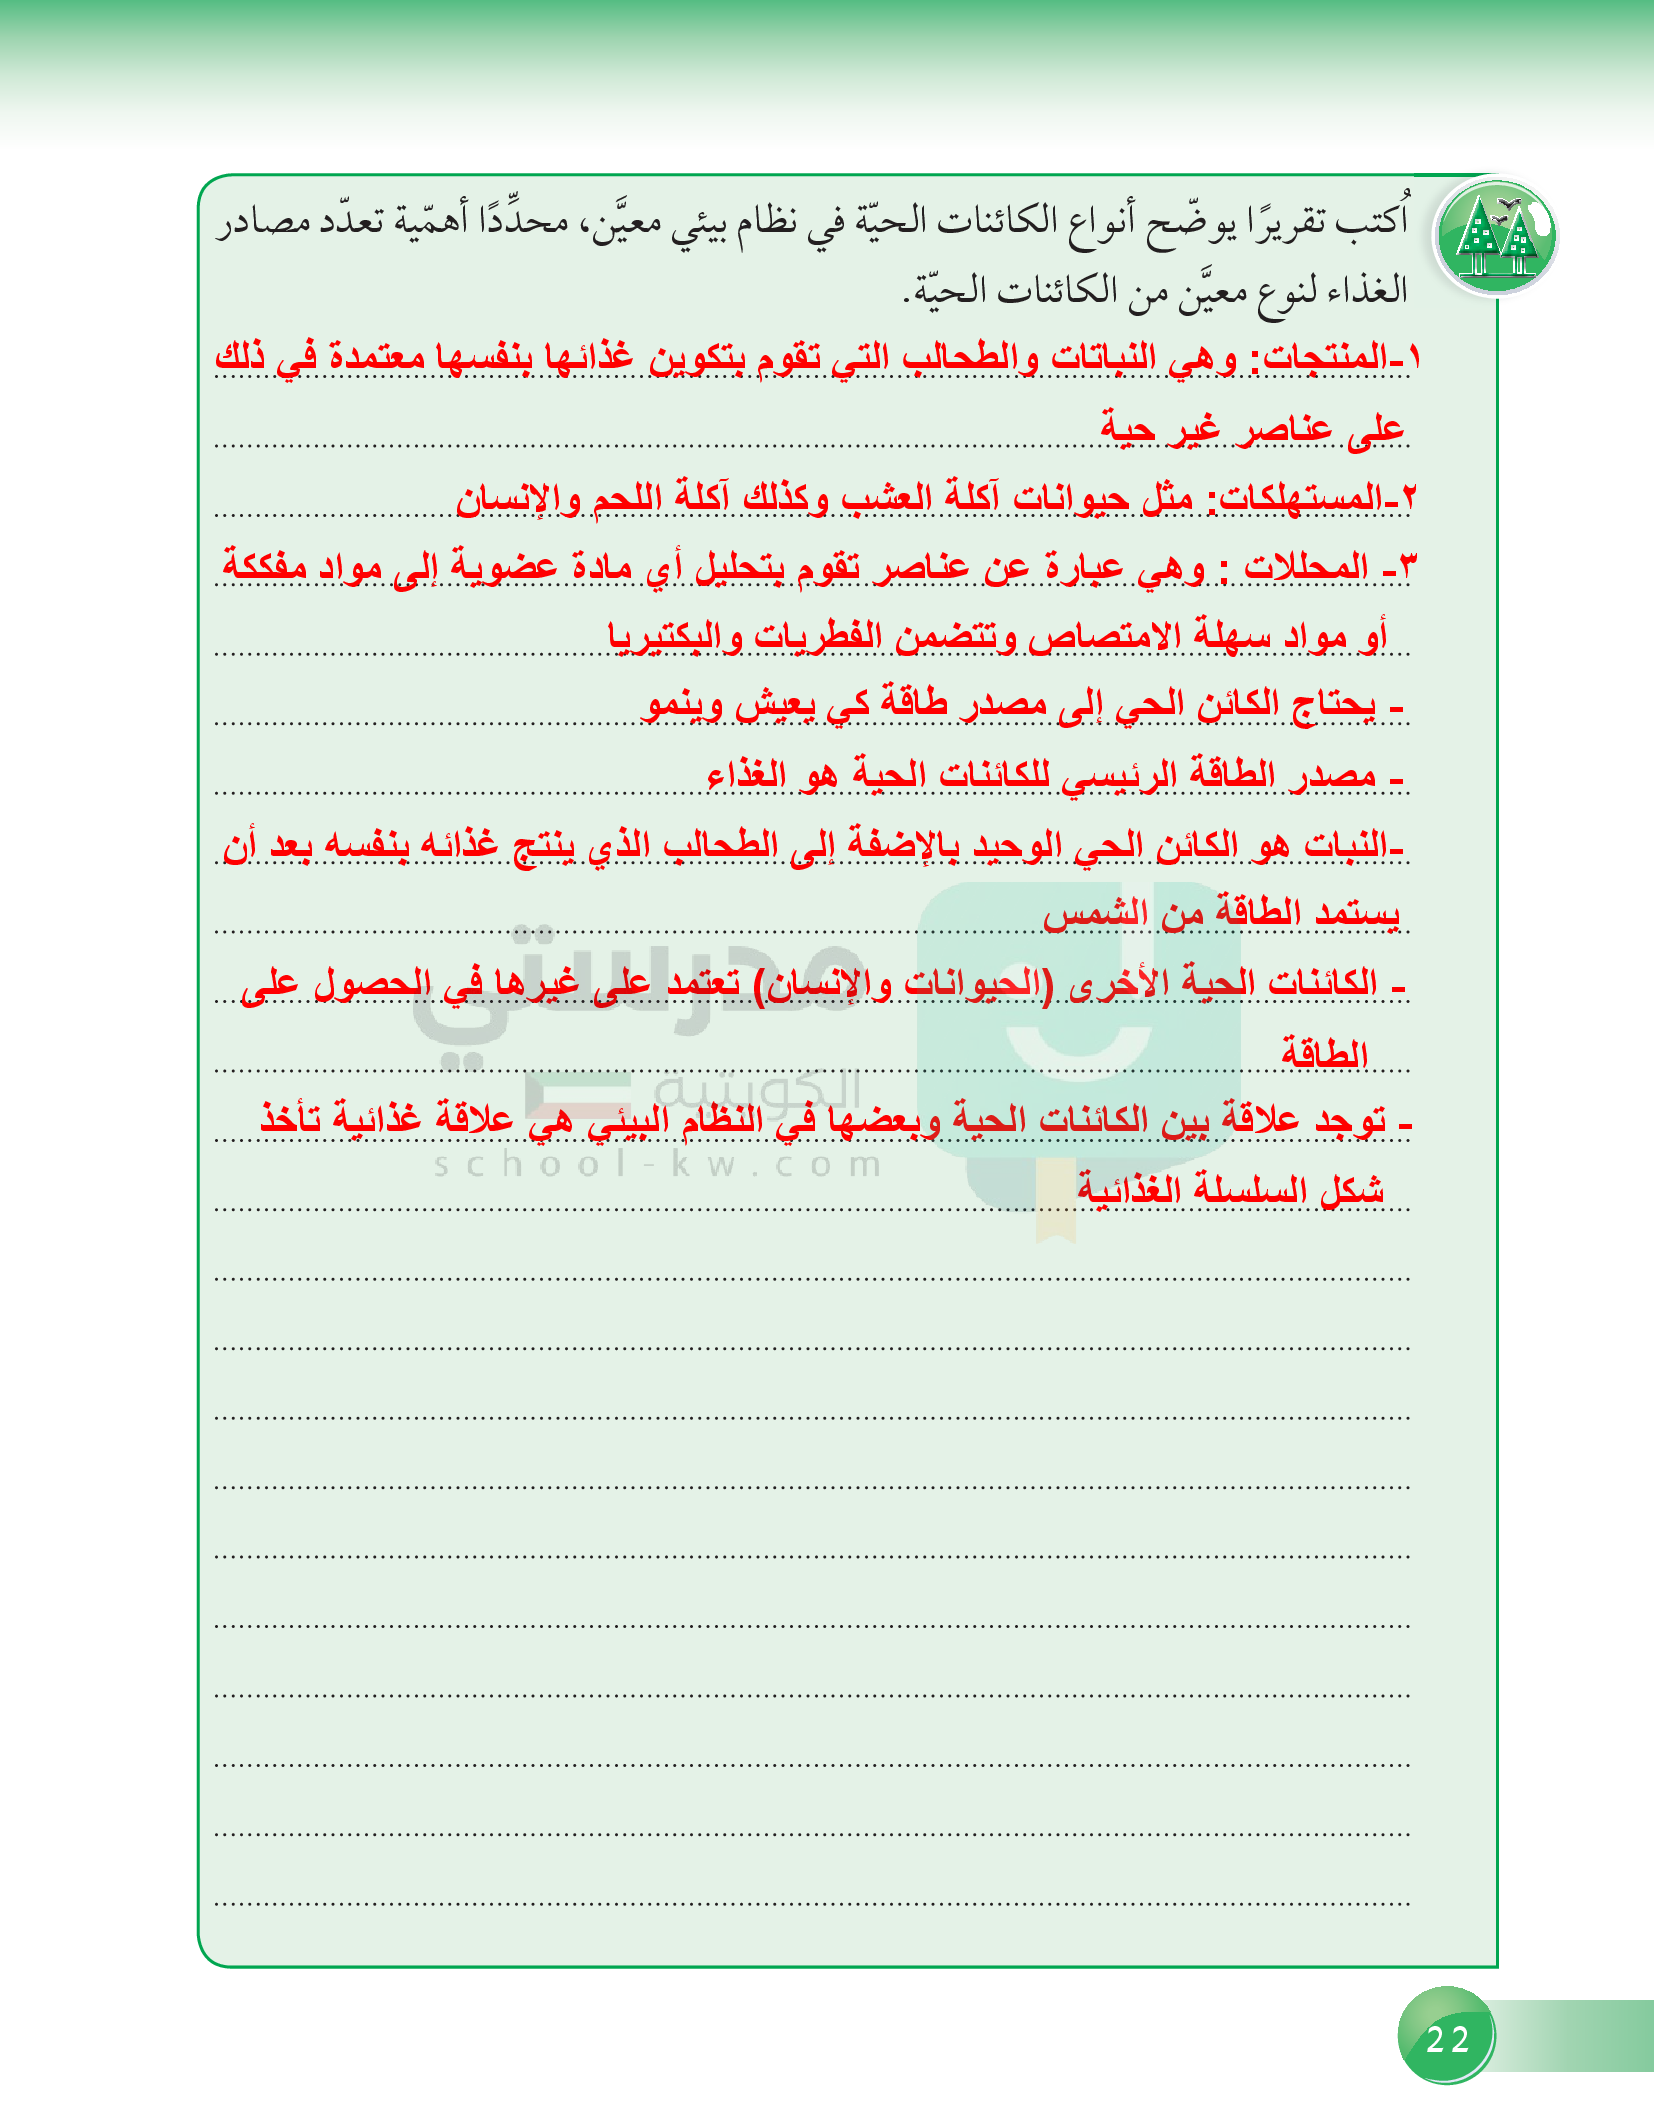 اُكتب تقريرًا يوضّح أنواع الكائنات الحيّة في نظام بيئي معيَّن، محدِّدًا أهمّية تعدّد مصادر
الغذاء لنوع معيَّن من الكائنات الحيّة.
١-المنتجات: وهي النباتات والطحالب التي تقوم بتكوين غذائها بنفسها معتمدة في ذلك
على عناصر غير حية
٢-المستهلكات: مثل حيوانات آكلة العشب وكذلك آكلة اللحم والإنسان
٣- المحللات : وهي عبارة عن عناصر تقوم بتحليل أي مادة عضوية إلى مواد مفككة
أو مواد سهلة الامتصاص وتتضمن الفطريات والبكتيريا
- يحتاج الكائن الحي إلى مصدر طاقة كي يعيش وينمو
- مصدر الطاقة الرئيسي للكائنات الحية هو الغذاء
-النبات هو الكائن الحي الوحيد بالإضفة إلى الطحالب الذي ينتج غذائه بنفسه بعد أن
يستمد الطاقة من الشمس
- الكائنات الحية الأخرى (الحيوانات والإنسان) تعتمد على غيرها في الحصول على
الطاقة
- توجد علاقة بين الكائنات الحية وبعضها في النظام البيئي هي علاقة غذائية تأخذ
شكل السلسلة الغذائية
مدرستي
الكويتية
school-kw.com
22